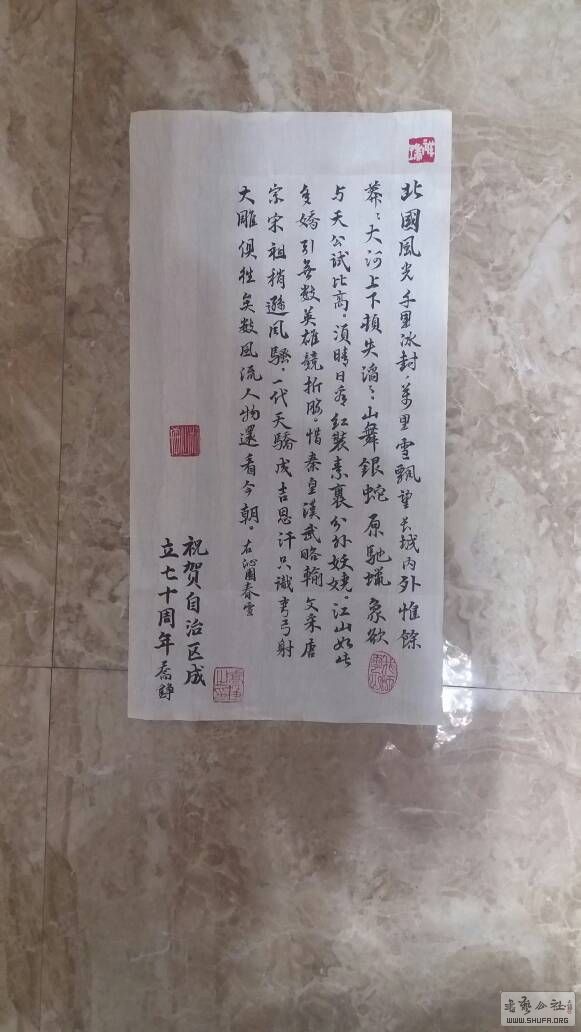 北國風光千里冰封，萬里雪飄望长城内外惟餘
莽〻大河上下頓失滔〻山舞銀蛇原馳蠟象欲
与天公试比高。須晴日看红装素裹分外妖嬈。江山如此
多嬌引無数英雄競折腰。惜秦皇漢武略輸文采唐
宗宋祖稍遜风騷。一代天驕成吉思汗只識弯弓射
大雕俱往矣数風流人物還看今朝。右沁園春雪
祝賀自治区成
立七十周年 喬
书艺公社
WWW.SHUFA.ORG